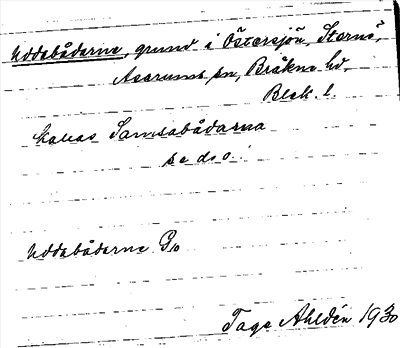 Uddabådarne, grund i Östersjön, Sternö,
Asarums sn, Bräkne hd,
Blek. l.
kallas Samsabådarna
se d. o.
Uddabådarne G/o
Tage Ahldén 1930